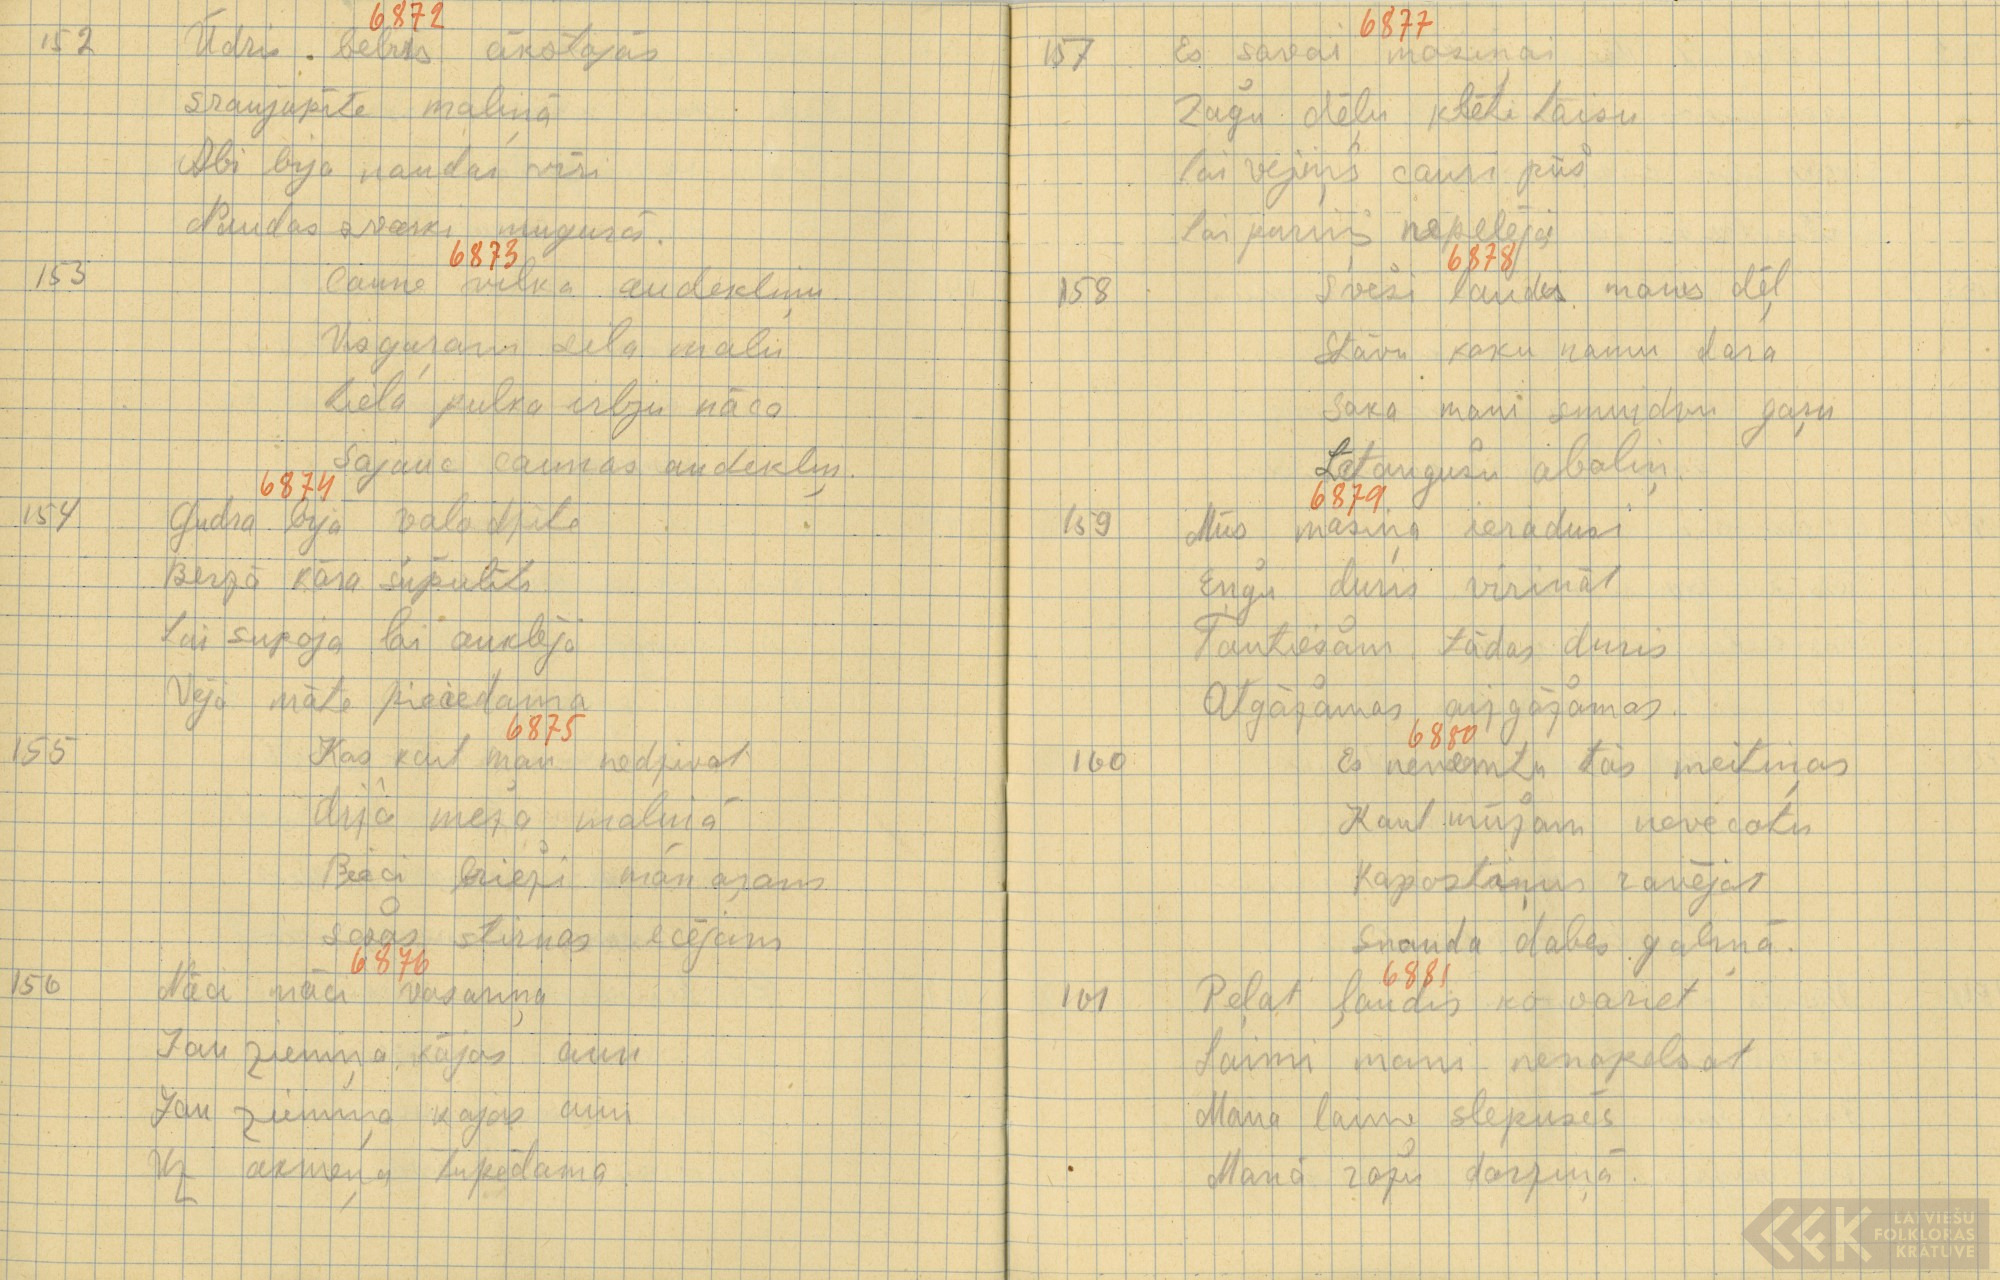 6872
152 Ūdris bebris ākstajās
Sraujupīte maliņā
Abi bija naudas vīri
Naudas svārki mugurā.
6873
153 Caune vilka audekliņu
Visgaram sila malu
Liela pulka irbju nāca
Sajauc caunas audekliņ.
6874
154 Gudra bija valodzīte
Berzā kāra šūpulīti
Lai šupoja lai auklēja
Vēja māte piecedama
6875
155 Kas kait man nedzivot
Aiz meža maliņā
Brieži man arams
stirnas ecējams
6876
156 Nāci nāci vasariņa
Jau ziemiņa kājas aun
Jau ziemiņa kajas aun
Uz akmeņa tupēdama
6877
157 Es savai masiņai
Zaģu dēļu klēti taisu
Lai vējiņš cauri pūš
Lai pūriņš nepelēja
6878
158 Sveši laudis manis dēļ
Stāvu koku namu dara
Saka mani smuidru gaŗu
Lataugušu abaliņ.
6879
159 Mūs masiņa ieradusi
Eņģu duris virināt
Tautiešam tādas duris
Atgāžamas aizgāžamas.
6880
160 Es neņemtu tās meitiņas
Kaut mūžam nevecotu
Kapostiņus ravējot
Snauda dabes galiņā.
6881
161 Peļat ļaudis ko variet
Laimi mani nenopelsat
Mana laime slepusēs
Manā rožu dārziņā.
LATVIEŠU
FOLKLORAS
KRĀTUVE